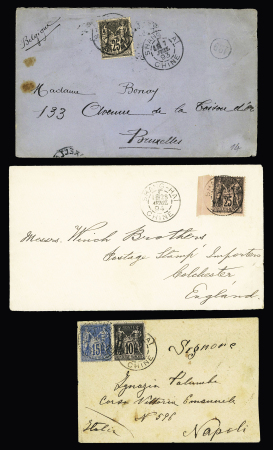 Belgique
75
CHINE
Madame Bonoy
133 Avenue de la Toison d'Or
Bruxelles
SHANG-HAI
25
CHINE
Messrs. Winch Brothers
Postage Stamp Importers
Colchester
England.
15
10
CHINE
Signore
Ignazio Palumbo
Corso Vittorio Emanuele
N° 596
Italia
Napoli